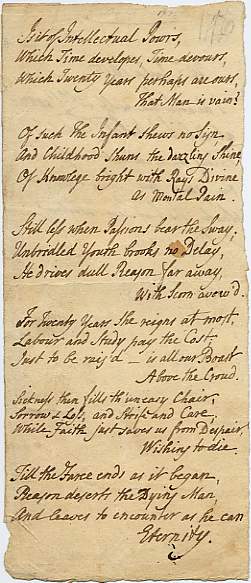 Is it of Intellectual Powrs,
Which Time developes, Time devours,
Which Twenty Years perhaps are ours,
That Man is vain?
Of such The Infant shews no Sign,
And Childhood shuns the dazzling Shine
Of Knowlege bright with Rays Divine
As Mental Pain.
Still less when Passions bear the Sway,
Unbridled Youth brooks no Delay,
He drives dull Reason far away,
With Scorn avow'd.
For Twenty Years She reigns at most,
Labour and Study pay the Cost,
Just to be rais'd is all our Boast
Above the Croud.
Sickness then fills th' uneasy Chair,
Sorrow & Loss, and Strife and Care,
While Faith just saves us from Despair,
Wishing to die.
Till the Farce ends as it began,
Reason deserts the Dying Man,
And leaves to encounter as he can
Eternity.